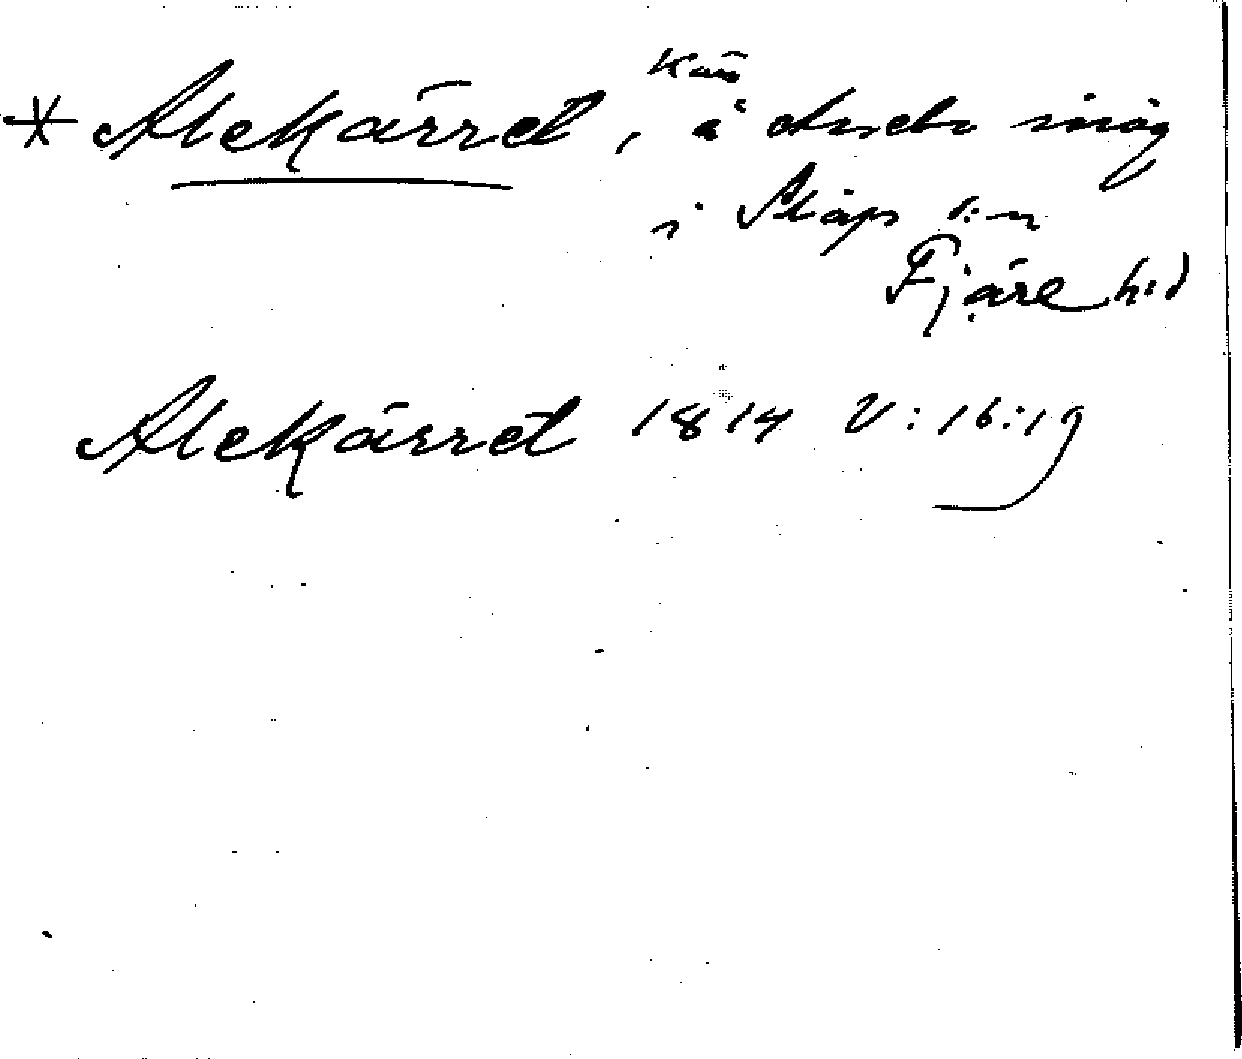 * Alekärret, kär
å Ekseter inäg
i Släps s:n
Fjäre h:d
Alekärret 1814 V:16:19